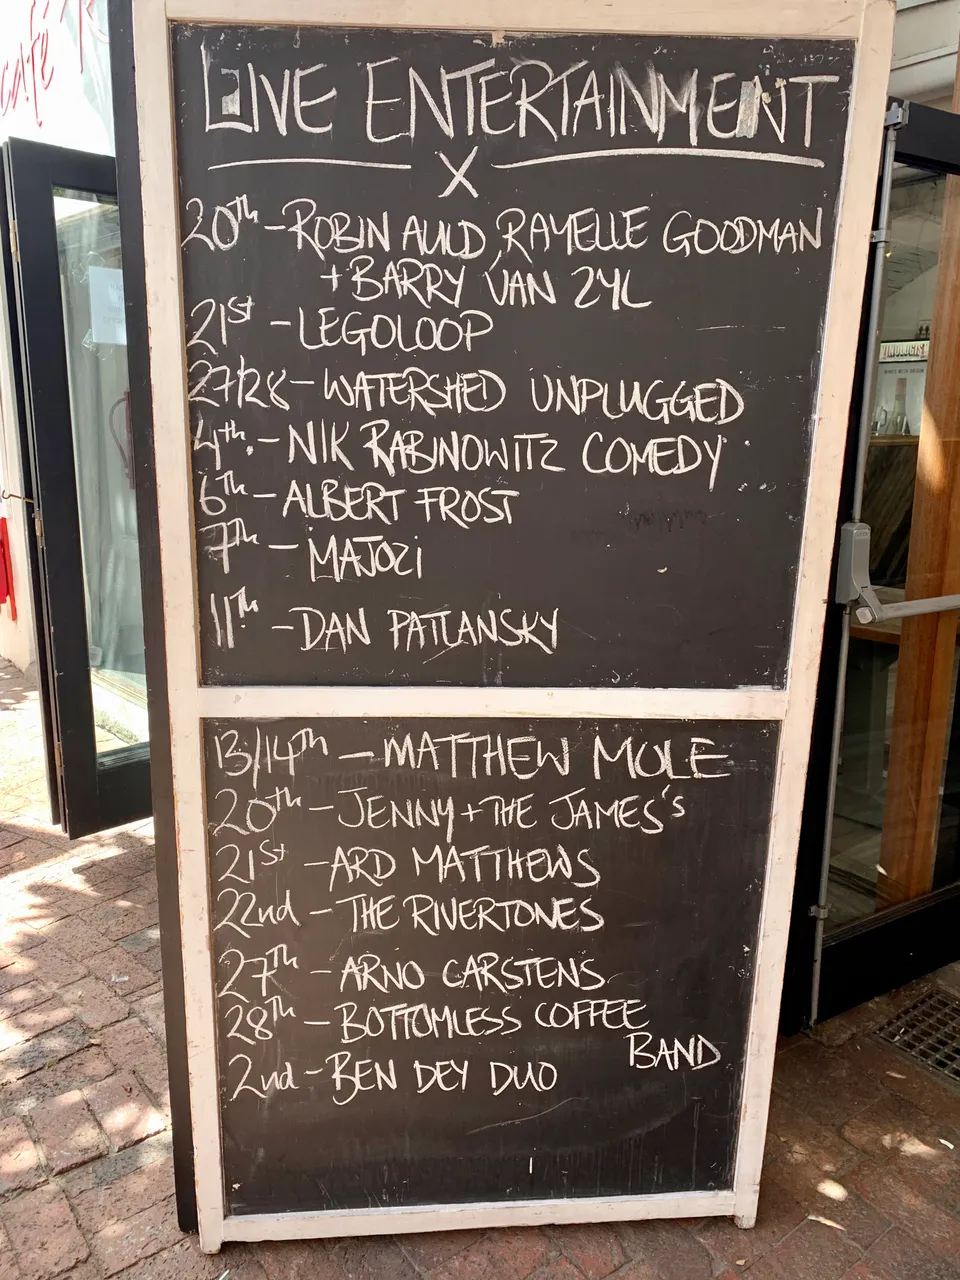 LIVE ENTERTAINMENT
X
20th - ROBIN AULD, RAYELLE GOODMAN
+ BARRY VAN ZYL
21st - LEGOLOOP
27/28 - WATERSHED UNPLUGGED
4th. - NIK RABINOWITZ COMEDY
6th - ALBERT FROST
7th - MAJOZI
11th - DAN PATLANSKY
13/14th - MATTHEW MOLE
20th - JENNY + THE JAMES'S
21st - ARD MATTHEWS
22nd - THE RIVERTONES
27th - ARNO CARSTENS
28th - BOTTOMLESS COFFEE
BAND
2nd - BEN DEY DUO
café